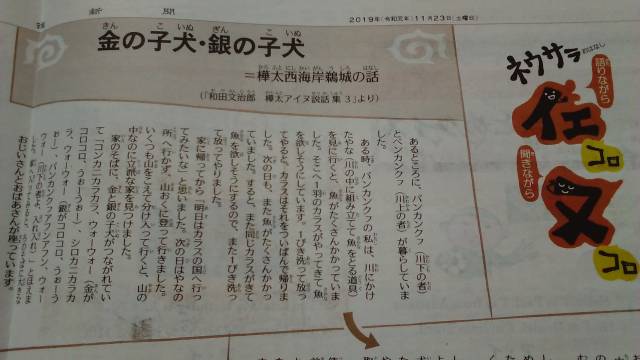 新聞
2019年(令和元年)11月23日(土曜日)
金の子犬・銀の子犬
=樺太西海岸鵜城の話
(『和田文治郎 樺太アイヌ説話集3』より)
ネウサラ
おはなし
語りながら
聞きながら
イ コロ
ヌ コロ
あるところに、パンカンクフ(川下の者)
とペンカンクフ(川上の者)が暮らしていま
した。
ある時、パンカンクフの私は、川にかけ
たやな(川の中に組み立てて魚をとる道具)
を見に行くと、魚がたくさんかかっていま
した。そこへ1羽のカラスがやってきて魚
を欲しそうにしています。1ぴき洗って放っ
てやると、カラスはそれをついばんで帰りま
した。次の日も、また魚がたくさんかかっ
ていました。すると、また同じカラスがきて
魚を欲しそうにするので、また1ぴき洗っ
て放ってやりました。
家に帰ってから「明日はカラスの国へ行っ
てみたいな」と思いました。次の日はやなの
所へ行かず、山おくに登って行きました。
いくつも山をこえて分け入って行くと、山の
中なのに立派な家を見つけました。
家のそばに、金と銀の子犬がつながれてい
て「コンカニカラカラ、ウォーウォー(金が
コロコロ、うぉーうぉー)、シロカニカラカ
ラ、ウォーウォー(銀がコロコロ、うぉーう
ぉー)、パンカンクフアフンアフン、ウォー
ウォー(川下の者よ、入れ入れ)」とほえま
おじいさんとおばあさんが座っています。